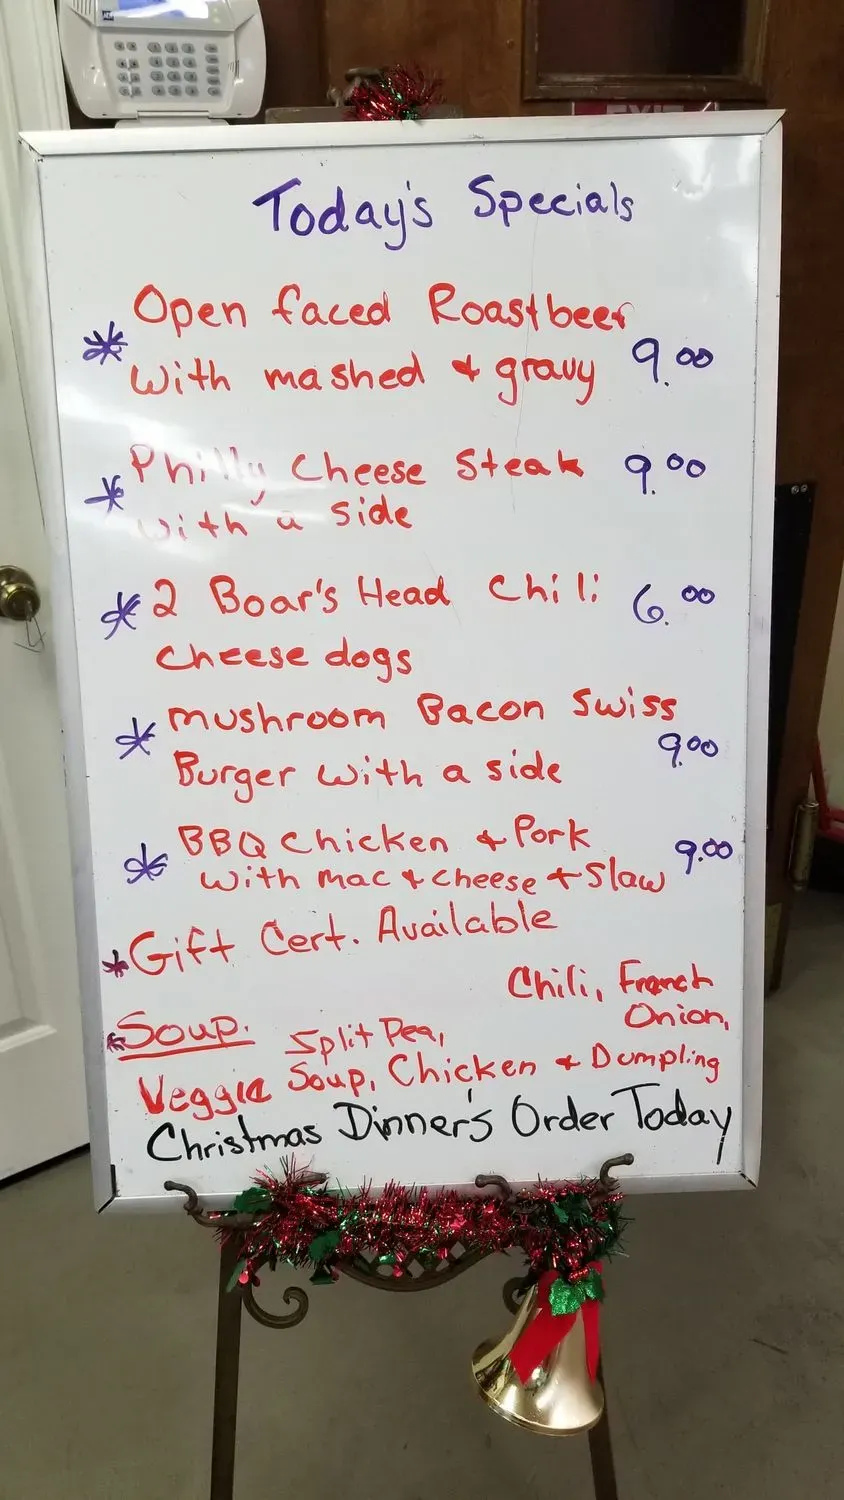 EXIT
Today's Specials
* Open faced Roastbeef
with mashed & gravy 9.00
* Philly Cheese Steak 9.00
with a side
* 2 Boar's Head Chili 6.00
Cheese dogs
* mushroom Bacon Swiss
Burger with a side 9.00
* BBQ Chicken & Pork 9.00
with Mac & cheese & Slaw
* Gift Cert. Available
Chili, French
Onion,
* Soup. Split Pea,
Veggie Soup, Chicken & Dumpling
Christmas Dinner's Order Today